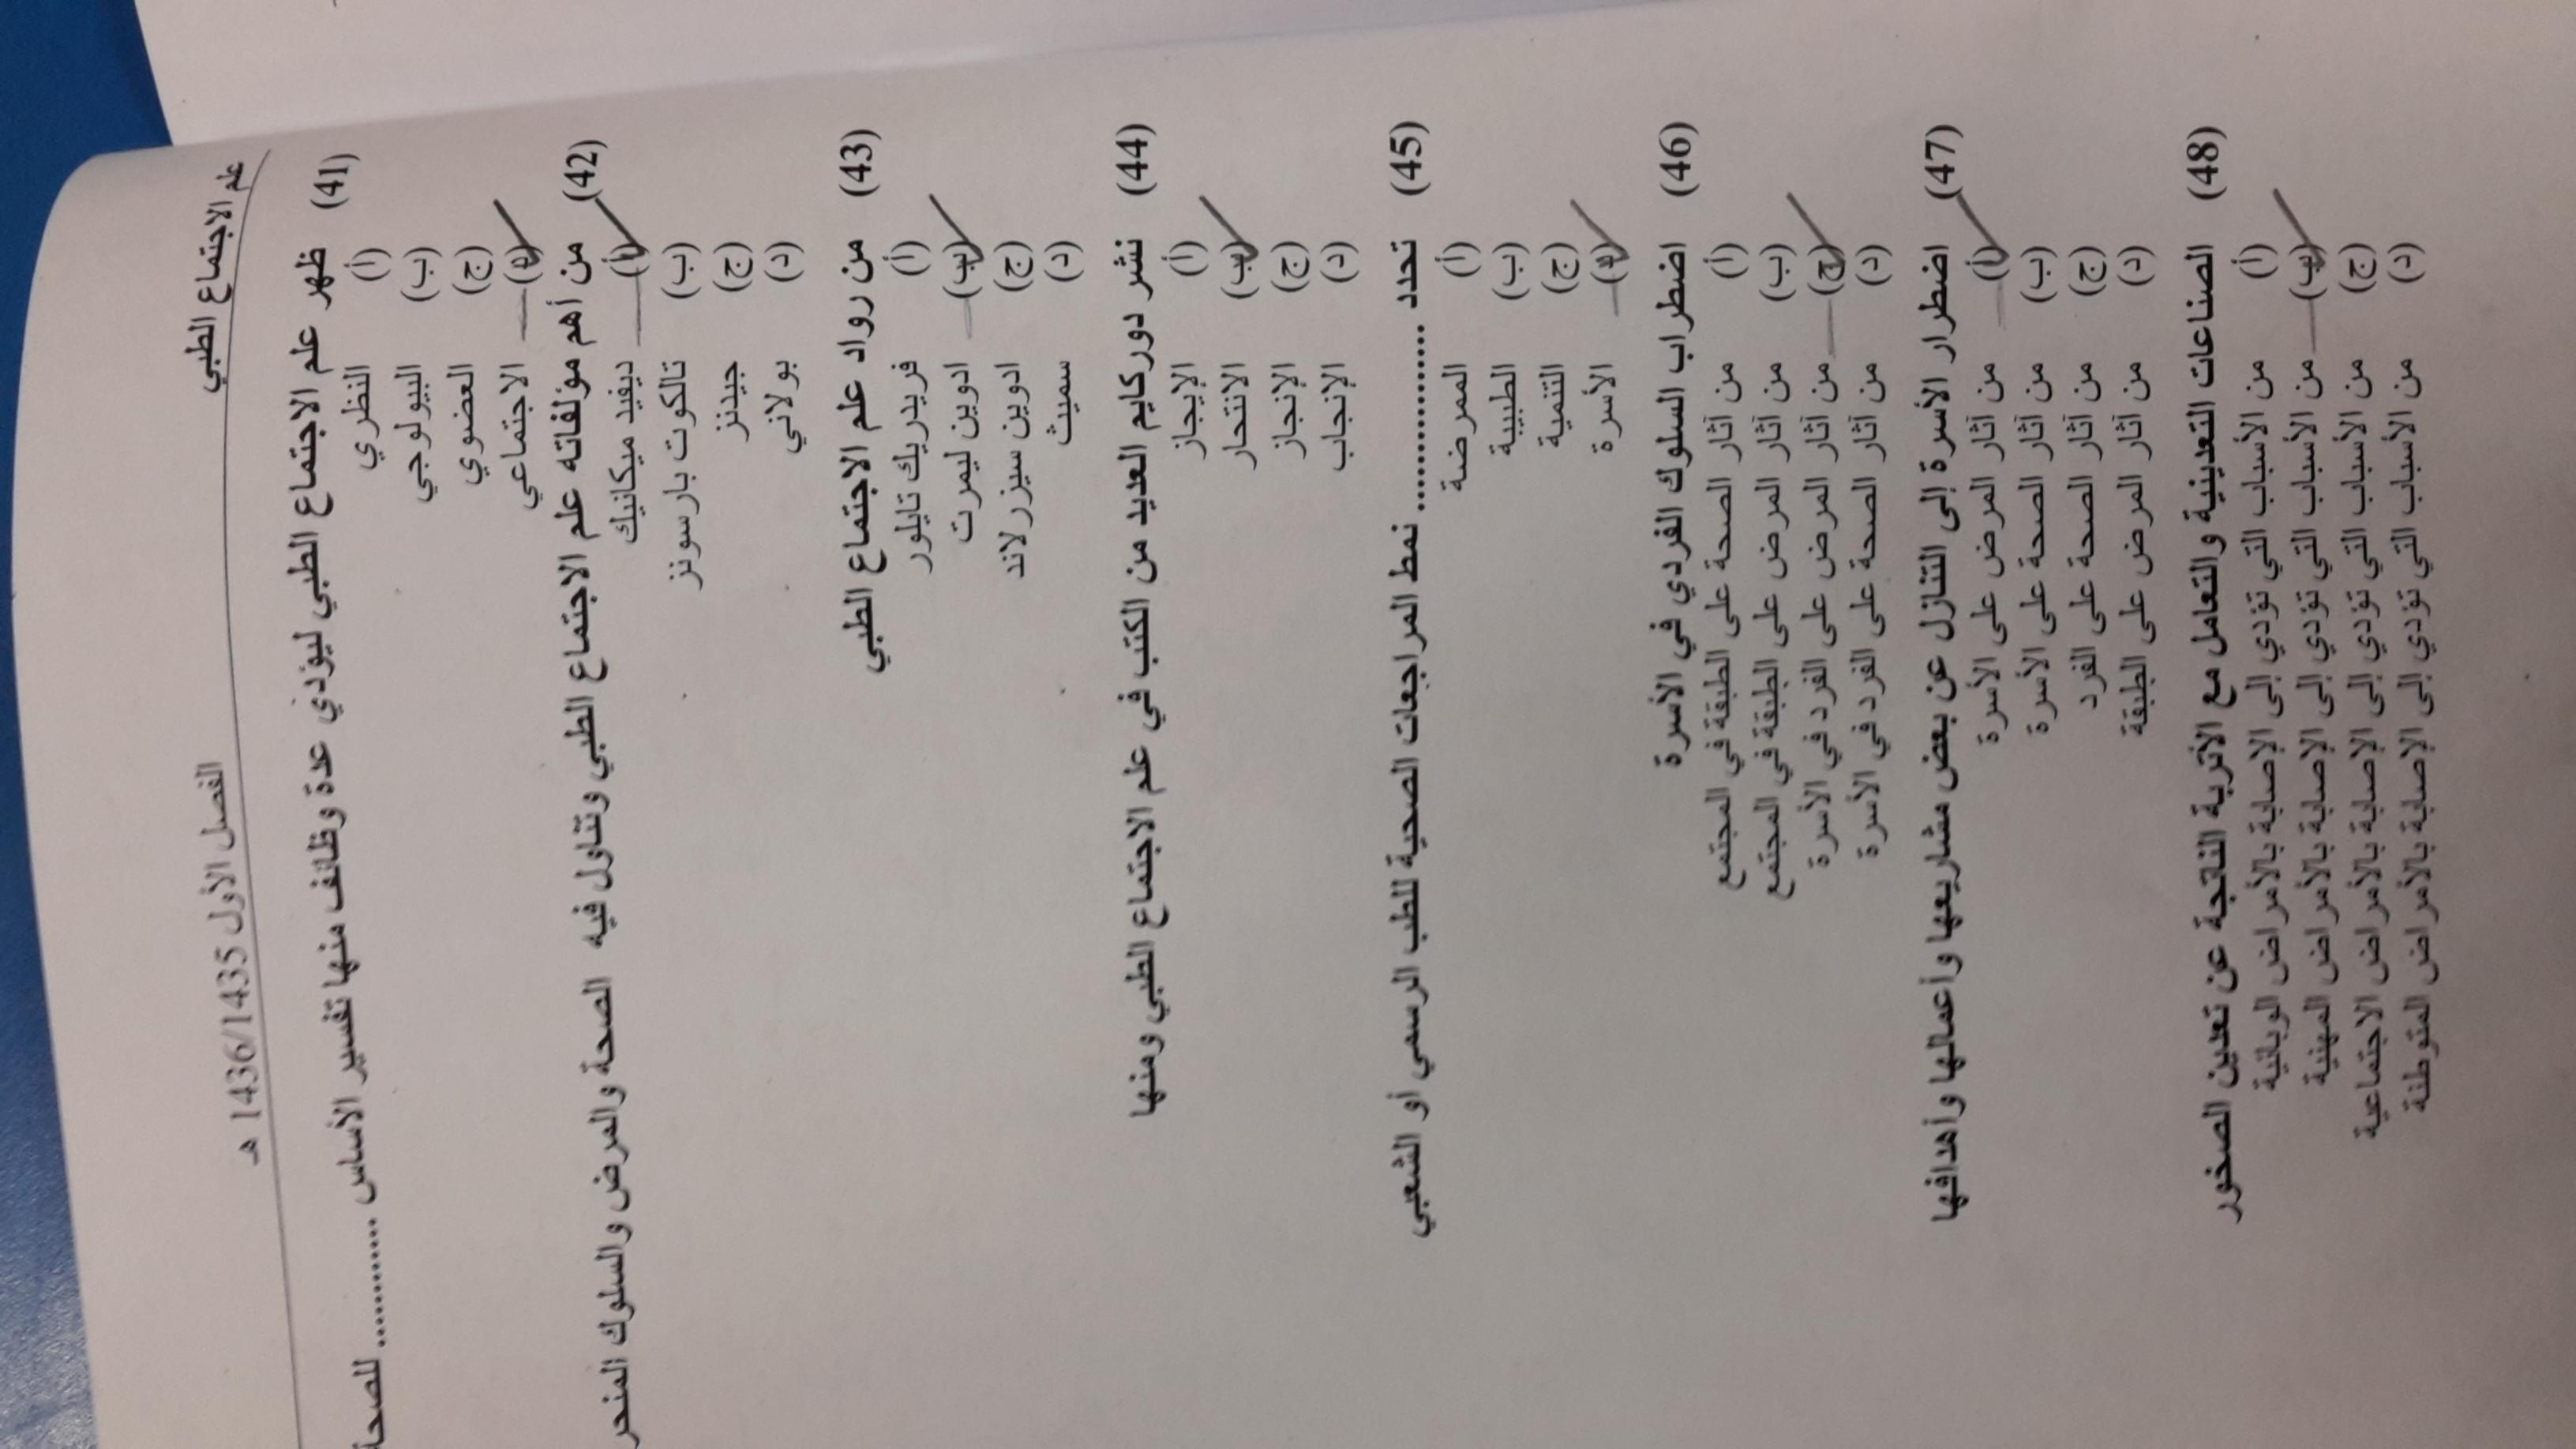 علم الاجتماع الطبي
الفصل الأول 1436/1435 هـ
(41) ظهر علم الاجتماع الطبي ليؤدي عدة وظائف منها تفسير الأساس ............ للصحة
(أ) النظري
(ب) البيولوجي
(ج) العضوي
(د) الاجتماعي
(42) من أهم مؤلفاته علم الاجتماع الطبي وتناول فيه الصحة والمرض والسلوك المنحر
(أ) ديفيد ميكانيك
(ب) تالكوت بارسونز
(ج) جيدنز
(د) بولاني
(43) من رواد علم الاجتماع الطبي
(أ) فريدريك تايلور
(ب) ادوين ليمرت
(ج) ادوين سيزرلاند
(د) سميث
(44) نشر دوركايم العديد من الكتب في علم الاجتماع الطبي ومنها
(أ) الإيجاز
(ب) الانتحار
(ج) الإنجاز
(د) الإنجاب
(45) تحدد ................ نمط المراجعات الصحية للطب الرسمي أو الشعبي
(أ) الممرضة
(ب) الطبيبة
(ج) التنمية
(د) الأسرة
(46) اضطراب السلوك الفردي في الأسرة
(أ) من آثار الصحة على الطبقة في المجتمع
(ب) من آثار المرض على الطبقة في المجتمع
(ج) من آثار المرض على الفرد في الأسرة
(د) من آثار الصحة على الفرد في الأسرة
(47) اضطرار الأسرة إلى التنازل عن بعض مشاريعها وأعمالها وأهدافها
(أ) من آثار المرض على الأسرة
(ب) من آثار الصحة على الأسرة
(ج) من آثار الصحة على الفرد
(د) من آثار المرض على الطبقة
(48) الصناعات التعدينية والتعامل مع الأتربة الناتجة عن تعدين الصخور
(أ) من الأسباب التي تؤدي إلى الإصابة بالأمراض الوبائية
(ب) من الأسباب التي تؤدي إلى الإصابة بالأمراض المهنية
(ج) من الأسباب التي تؤدي إلى الإصابة بالأمراض الاجتماعية
(د) من الأسباب التي تؤدي إلى الإصابة بالأمراض المتوطنة